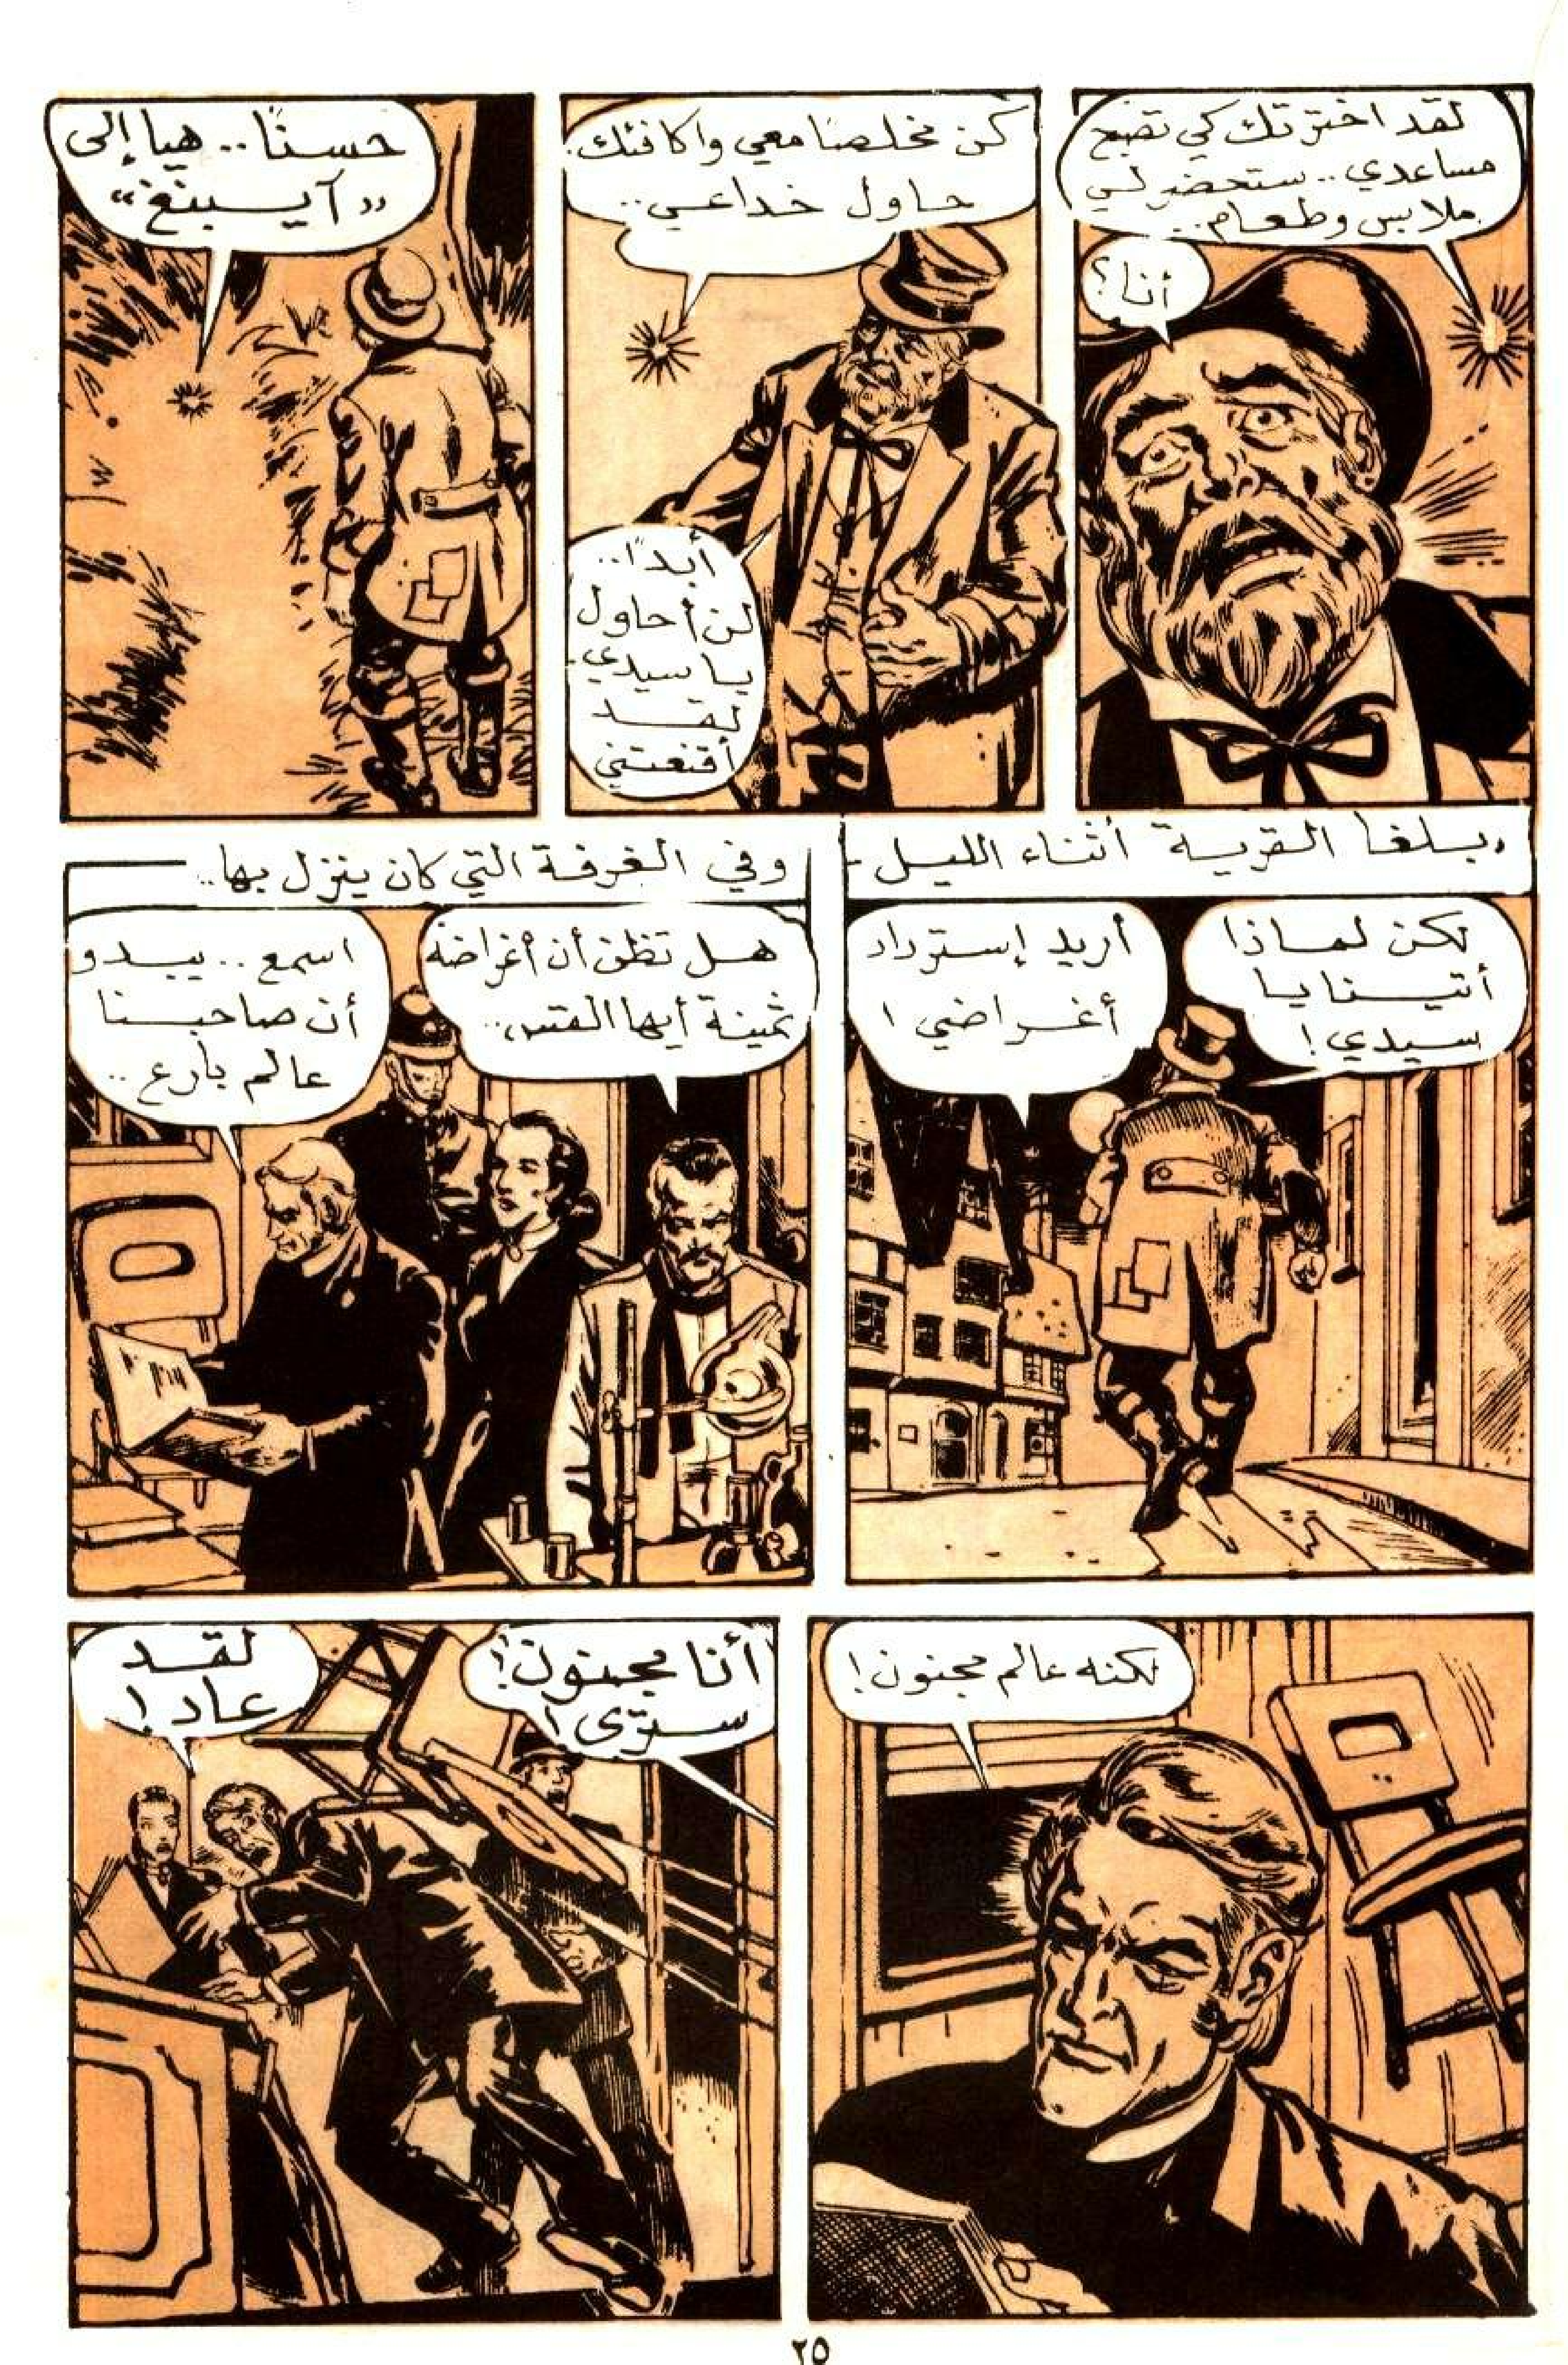 لقد اخترتك كي تصبح
مساعدي.. ستحضر لي
ملابس وطعام..
أنا؟
كن مخلصًا معي واكافئك.
حاول خداعي..
أبدًا..
لن أحاول
يا سيدي.
لقد
أقنعتني
حسنًا.. هيا إلى
«آيسبنغ»
وبلغا القرية أثناء الليل -
لكن لماذا
أتينا يا
سيدي!
أريد إسترداد
أغراضي!
وفي الغرفة التي كان ينزل بها..
هل تظن أن أغراضه
ثمينة أيها القس..
اسمع.. يبدو
أن صاحبنا
عالم بارع..
لكنه عالم مجنون!
أنا مجنون!
سترى!
لقد
عاد!
٢٥